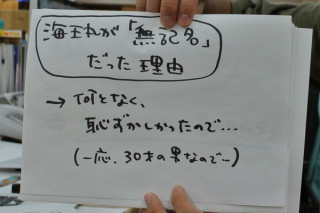 海王れが「無記名」
だった理由
→ 何となく、
恥ずかしかったので…
(一応、30才の男なので…)